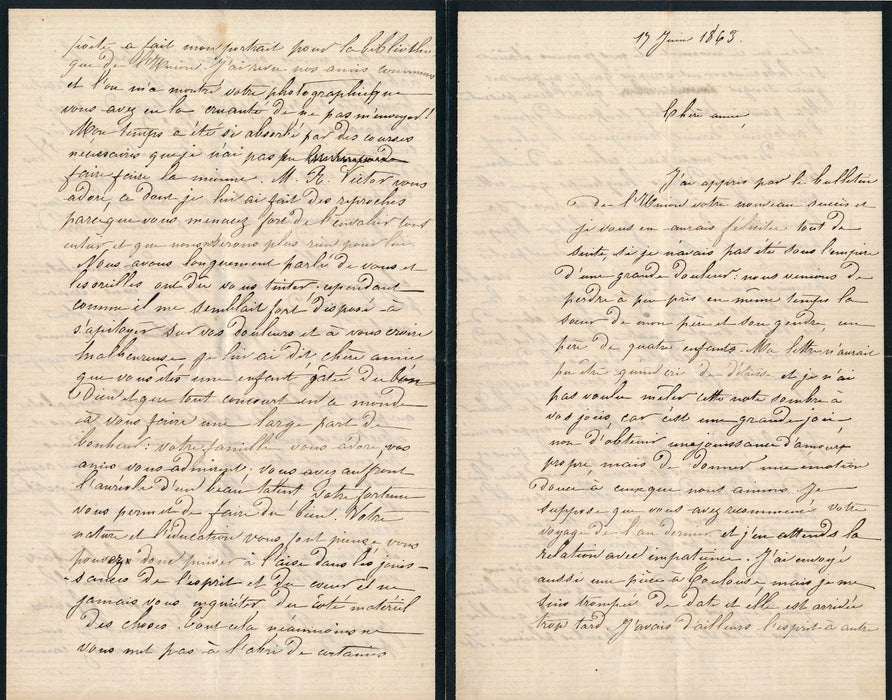 17 Juin 1863.
Chère amie
J'ai appris par le bulletin
de l'Union votre nouveau succès et
je vous en aurais félicitée tout de
suite si je n'avais pas été sous l'empire
d'une grande douleur: nous venions de
perdre à peu près en même temps la
sœur de mon père et son gendre, un
père de quatre enfants. Ma lettre n'aurait
pu être qu'un cri de détresse et je n'ai
pas voulu mêler cette note sombre à
vos joies, car c'est une grande joie
non d'obtenir une jouissance d'amour
propre mais de donner une émotion
douce à ceux que nous aimons. Je
suppose que vous avez recommencé votre
voyage de l'an dernier et j'en attends la
relation avec impatience. J'ai envoyé
aussi une pièce à Toulouse mais je me
suis trompée de date et elle est arrivée
trop tard. J'avais d'ailleurs l'esprit à autre
a fait mon portrait pour la bibliothè
que de l'Union. J'ai revu nos amis communs
et l'on m'a montré votre photographie que
vous avez eu la cruauté de ne pas m'envoyer!!
Mon temps a été si absorbé par des courses
nécessaires que je n'ai pas pu
faire faire la mienne. M. R. Victor vous
adore ce dont je lui ai fait des reproches
parce que vous menacez fort de l'envahir tout
entier et que nous n'aurons plus rien pour
Nous avons longuement parlé de vous et
les oreilles ont dû vous tinter. cependant
comme il me semblait fort disposé à
s'apitoyer sur vos douleurs et à vous croire
malheureuse je lui ai dit, chère amie
que vous êtes une enfant gâtée du bon
Dieu et que tout concourt en ce monde
à vous faire une large part de
bonheur: votre famille vous adore, vos
amis vous admirent. vous avez au front
l'auréole d'un beau talent. Votre fortune
vous permet de faire du bien. Votre
nature et l'éducation vous
pouvez donc puiser à l'aise dans les jouis-
sances de l'esprit et du cœur et ne
jamais vous inquiéter du côté matériel
des choses. Tout cela néanmoins ne
vous met pas à l'abri de certaines